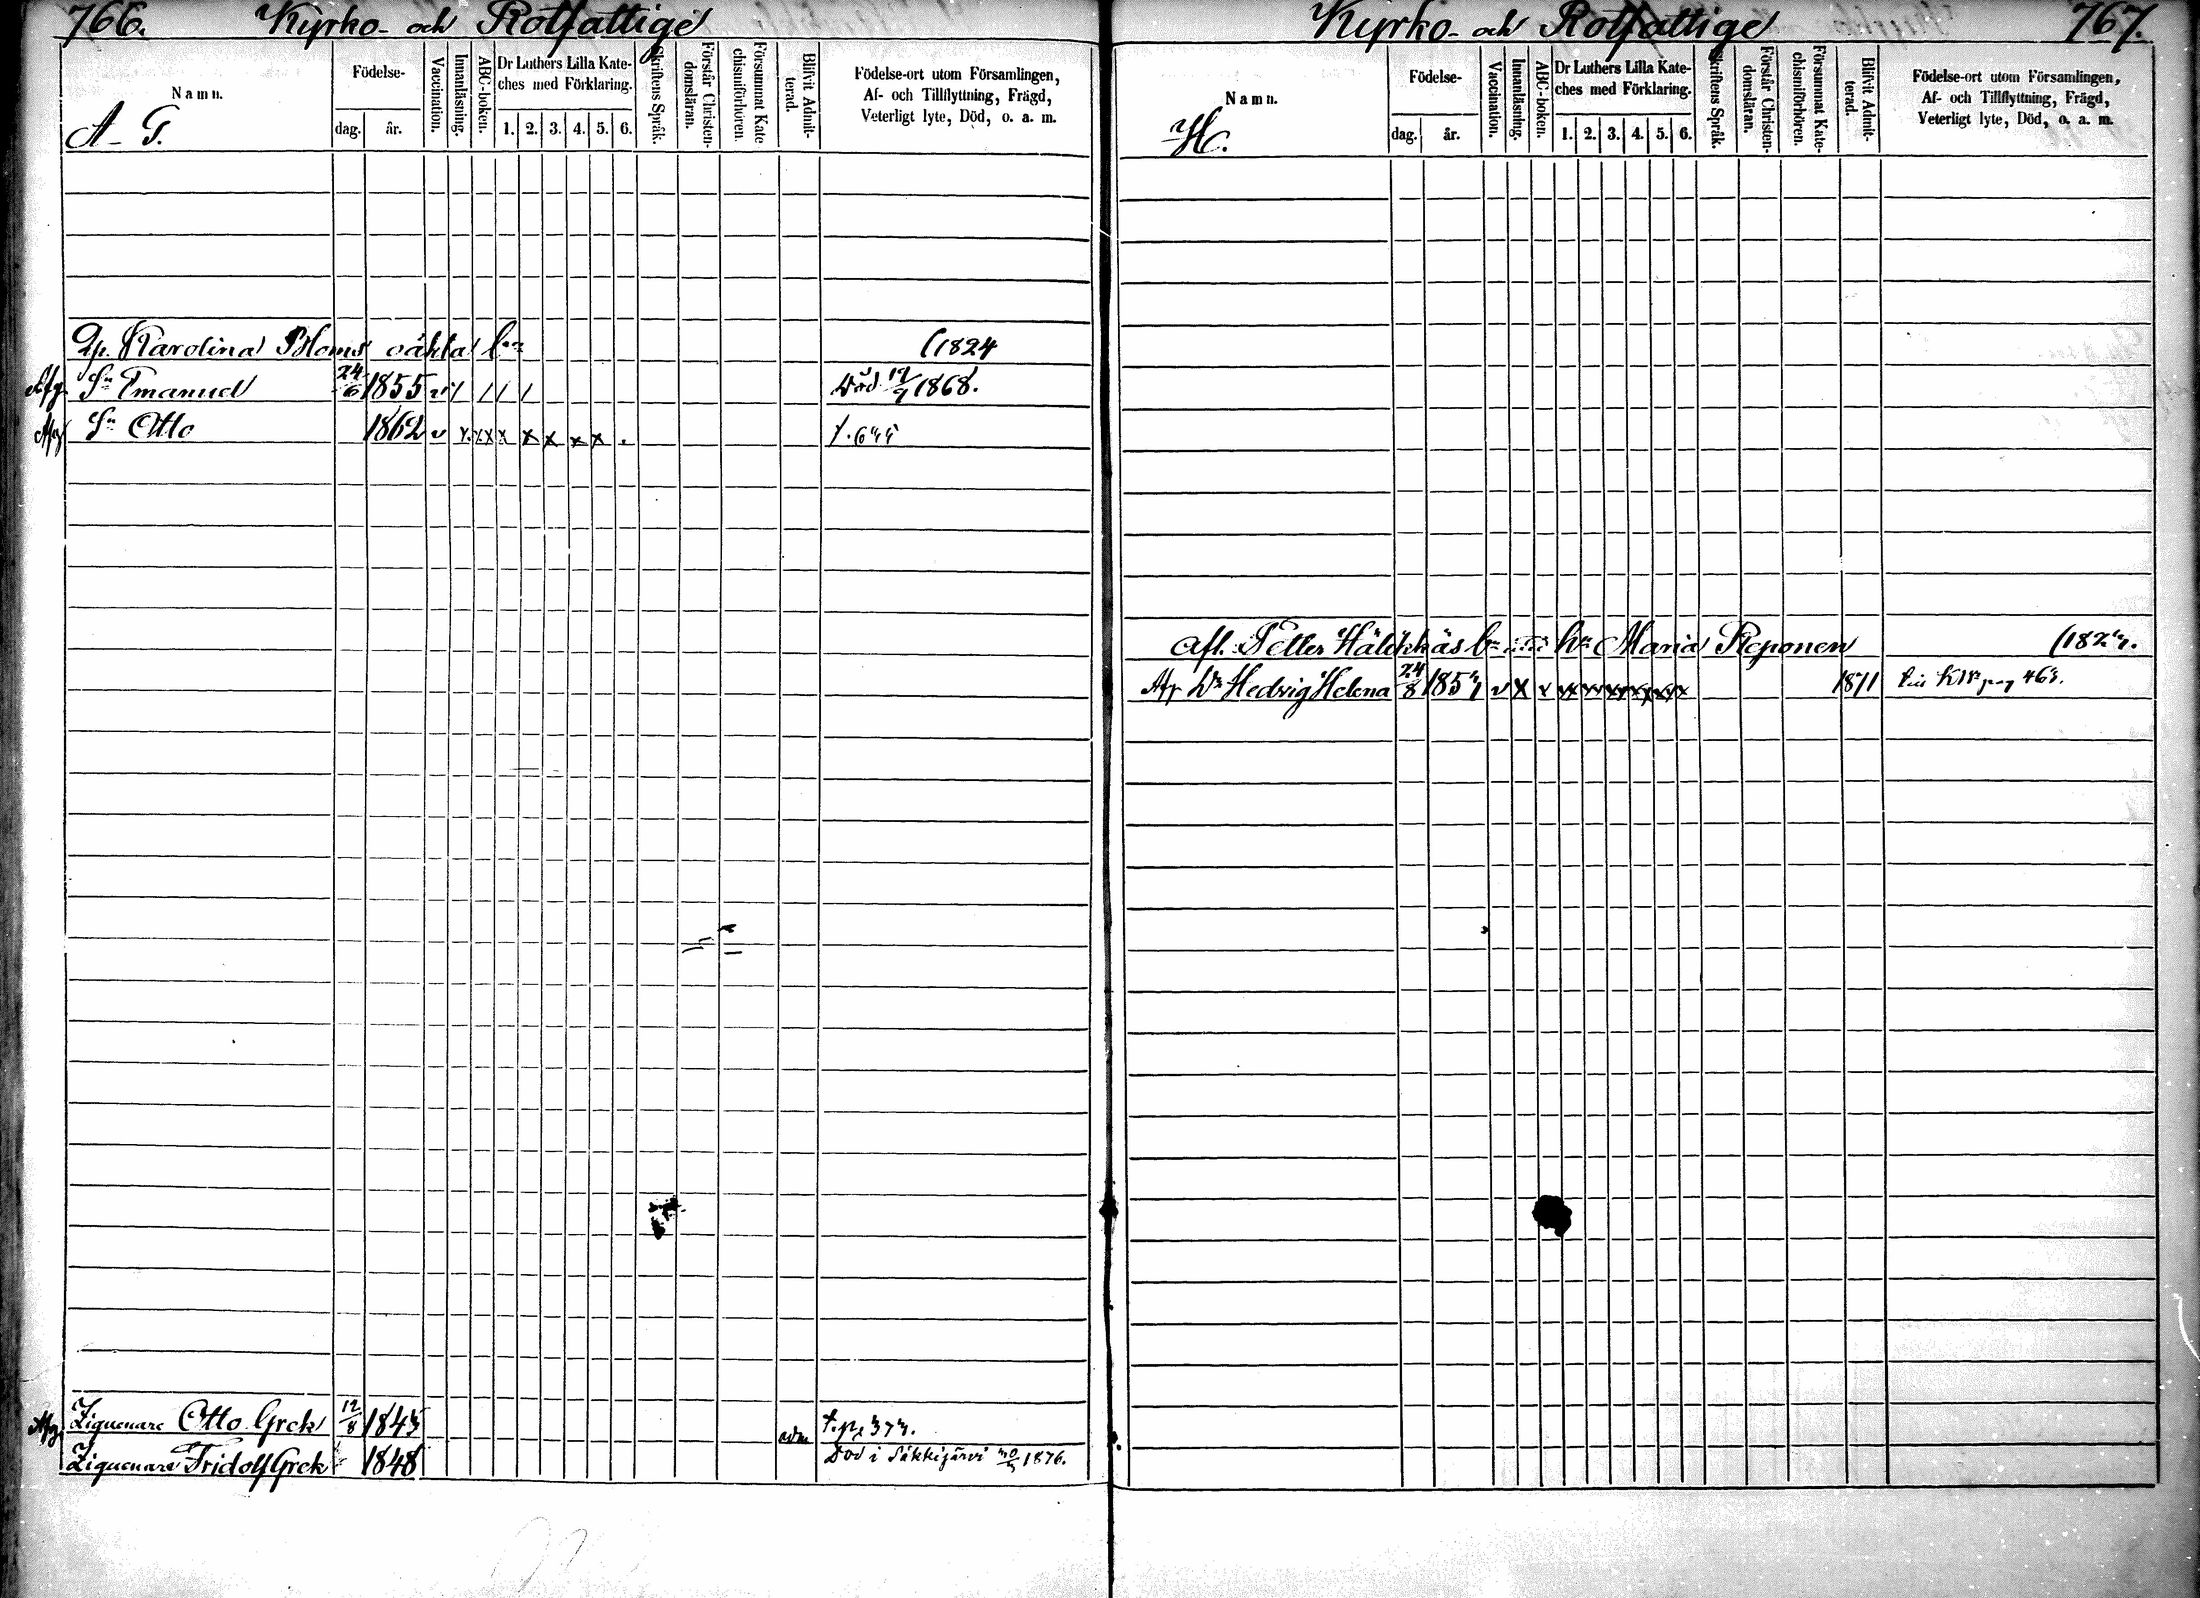 766. Kyrko- och Rotfattige
Namn.
A-G.
Födelse-
dag.
år.
Vaccination.
Innanläsning.
ABC-boken.
Dr Luthers Lilla Kate-
ches med Förklaring.
1. 2. 3. 4. 5. 6.
Skriftens Språk.
Förstår Christen-
domsläran.
Försummat Kate
chismiförhören.
Blifvit Admit-
terad.
Födelse-ort utom Församlingen,
Af- och Tillflyttning, Frägd,
Veterligt lyte, Död, o. a. m.
Karolina Bloms oäkta bn (1824
Afg Sn Emanuel 24/6 1855 v / / / / / Död 1868.
Afg Sn Otto 1862 v x. x x x x x x x .
Afg Ziguenare Otto Grek 12/8 1843 adm
Ziguenare Fridolf Grek 1848 Död i Säkkijärvi 1876.
Kyrko- och Rotfattige 767.
Namn.
H.
Födelse-
dag.
år.
Vaccination.
Innanläsning.
ABC-boken.
Dr Luthers Lilla Kate-
ches med Förklaring.
1. 2. 3. 4. 5. 6.
Skriftens Språk.
Förstår Christen-
domsläran.
Försummat Kate-
chismiförhören.
Blifvit Admit-
terad.
Födelse-ort utom Församlingen,
Af- och Tillflyttning, Frägd,
Veterligt lyte, Död, o. a. m.
Afl. Petter Häkkäs bn hu Maria Reponen
Afg Dr Hedvig Helena 24/8 v x x xx xx xx xx xx xx 1871